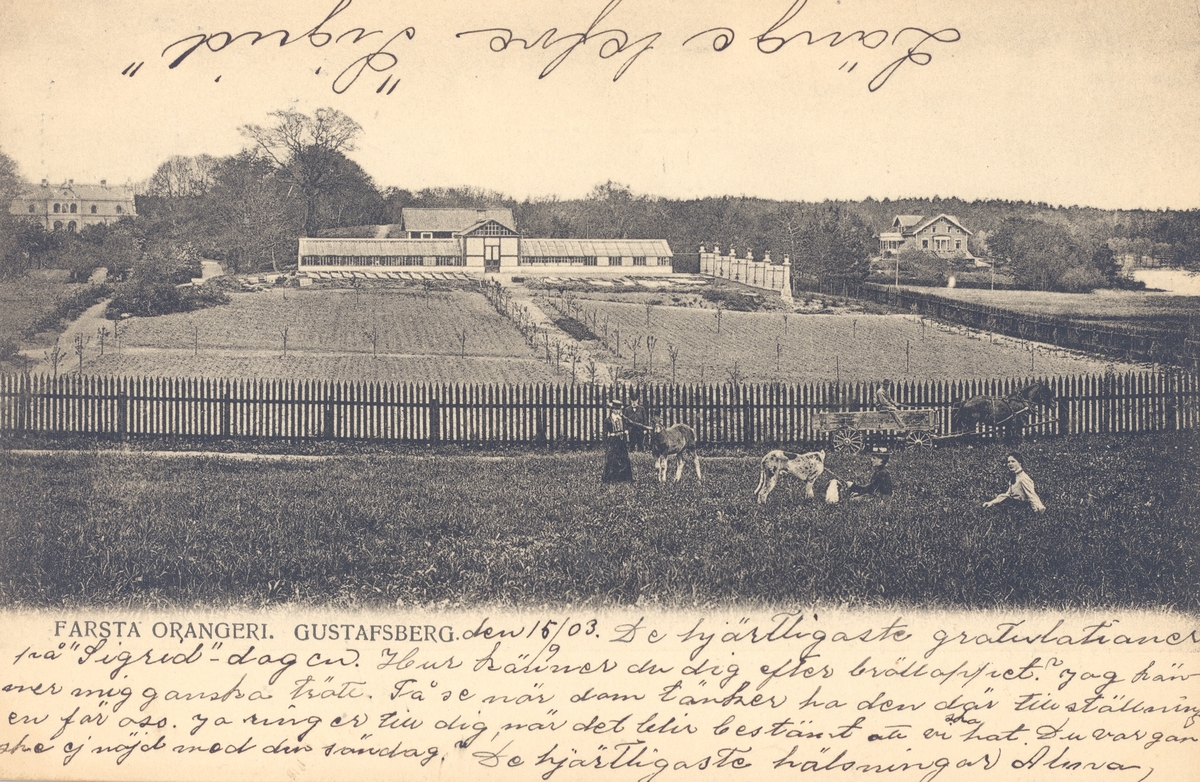 "Länge lefve Sigrid"
FARSTA ORANGERI. GUSTAFSBERG. den 15/9 03. De hjärtligaste gratulationer
på "Sigrid"-dagen. Hur känner du dig efter brölloppet? Jag kän-
ner mig ganska trött. Få se när dom tänker ha den där tillställning
en för oss. Ja ringer till dig, när det blir bestämt att vi ska hat. Du var gan
ske ej nöjd med din söndag." De hjärtligaste hälsningar Alma,